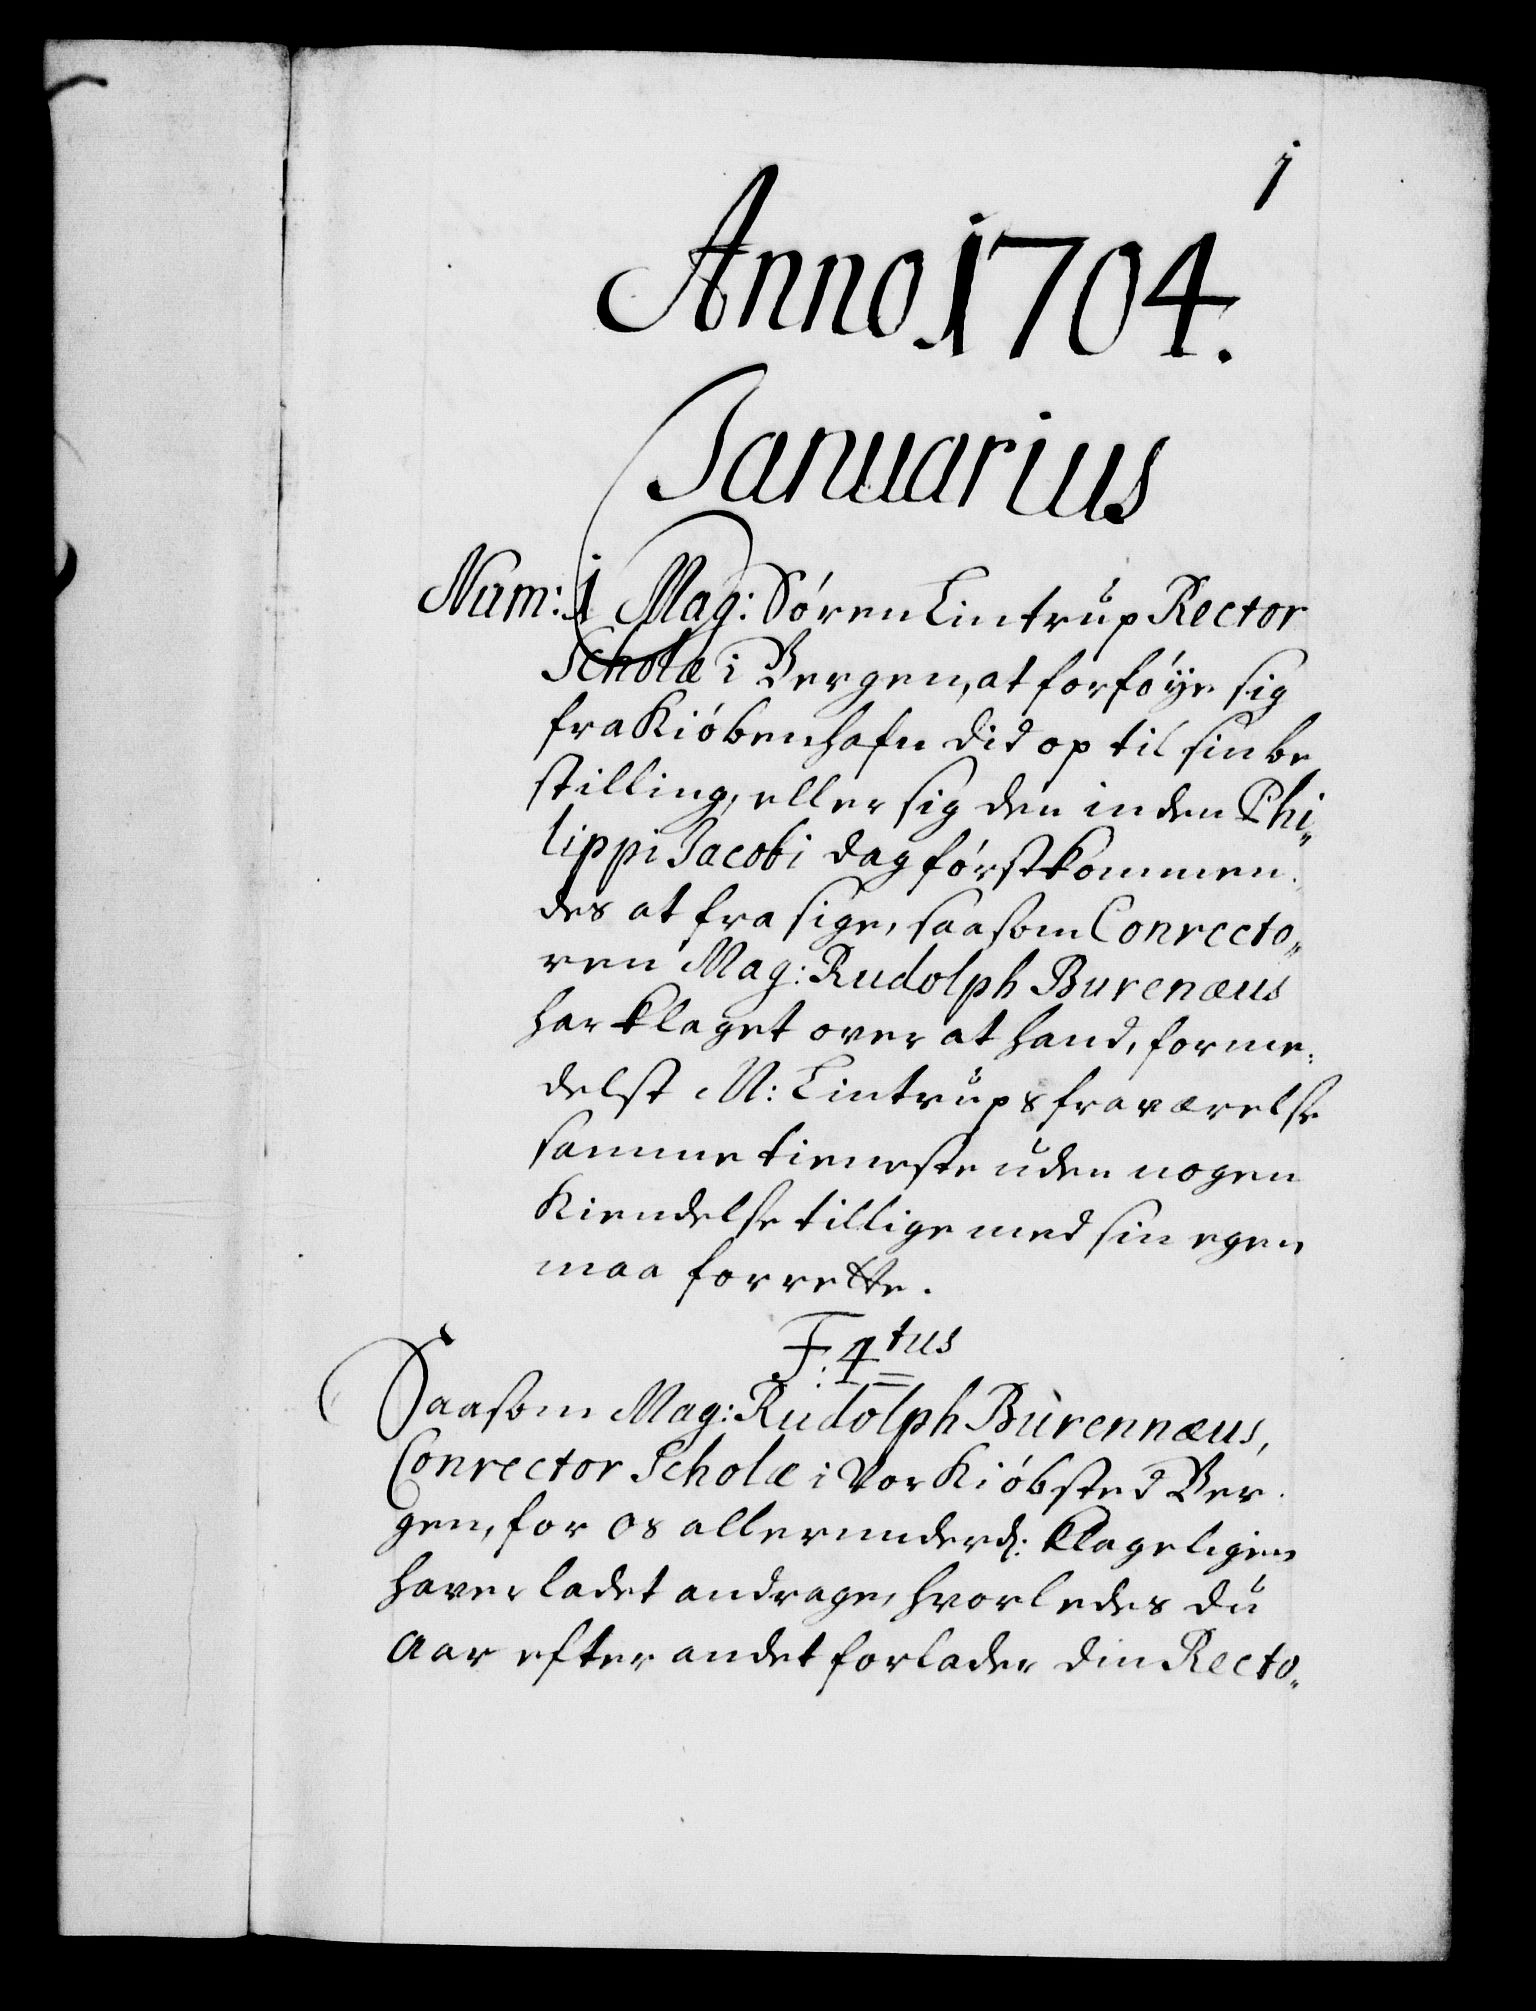 1
Anno 1704.
Januarius
Num: 1 Mag: Sören Lintrup Rector
Scholæ i Bergen, at forföÿe sig
fra Kiöbenhafn did op til sin be
stilling, eller sig den inden Phi„
lippi Jacobi dag förstkommen„
des at fra sige, saasom Conrecto„
ren Mag: Rudolph Burenæus
har klaget over at hand, forme„
delst M: Lintrups fraværelse
samme tieneste uden nogen
Kiendelse tillige med sin egen
maa forrette.
F: 4tus
Saasom Mag: Rudolph Burennæus,
Conrector Scholæ i Vor Kiöbsted Ber„
gen, for os allerunderd: klageligen
haver ladet andrage, hvorledes du
Aar efter andet forlader din Recto„